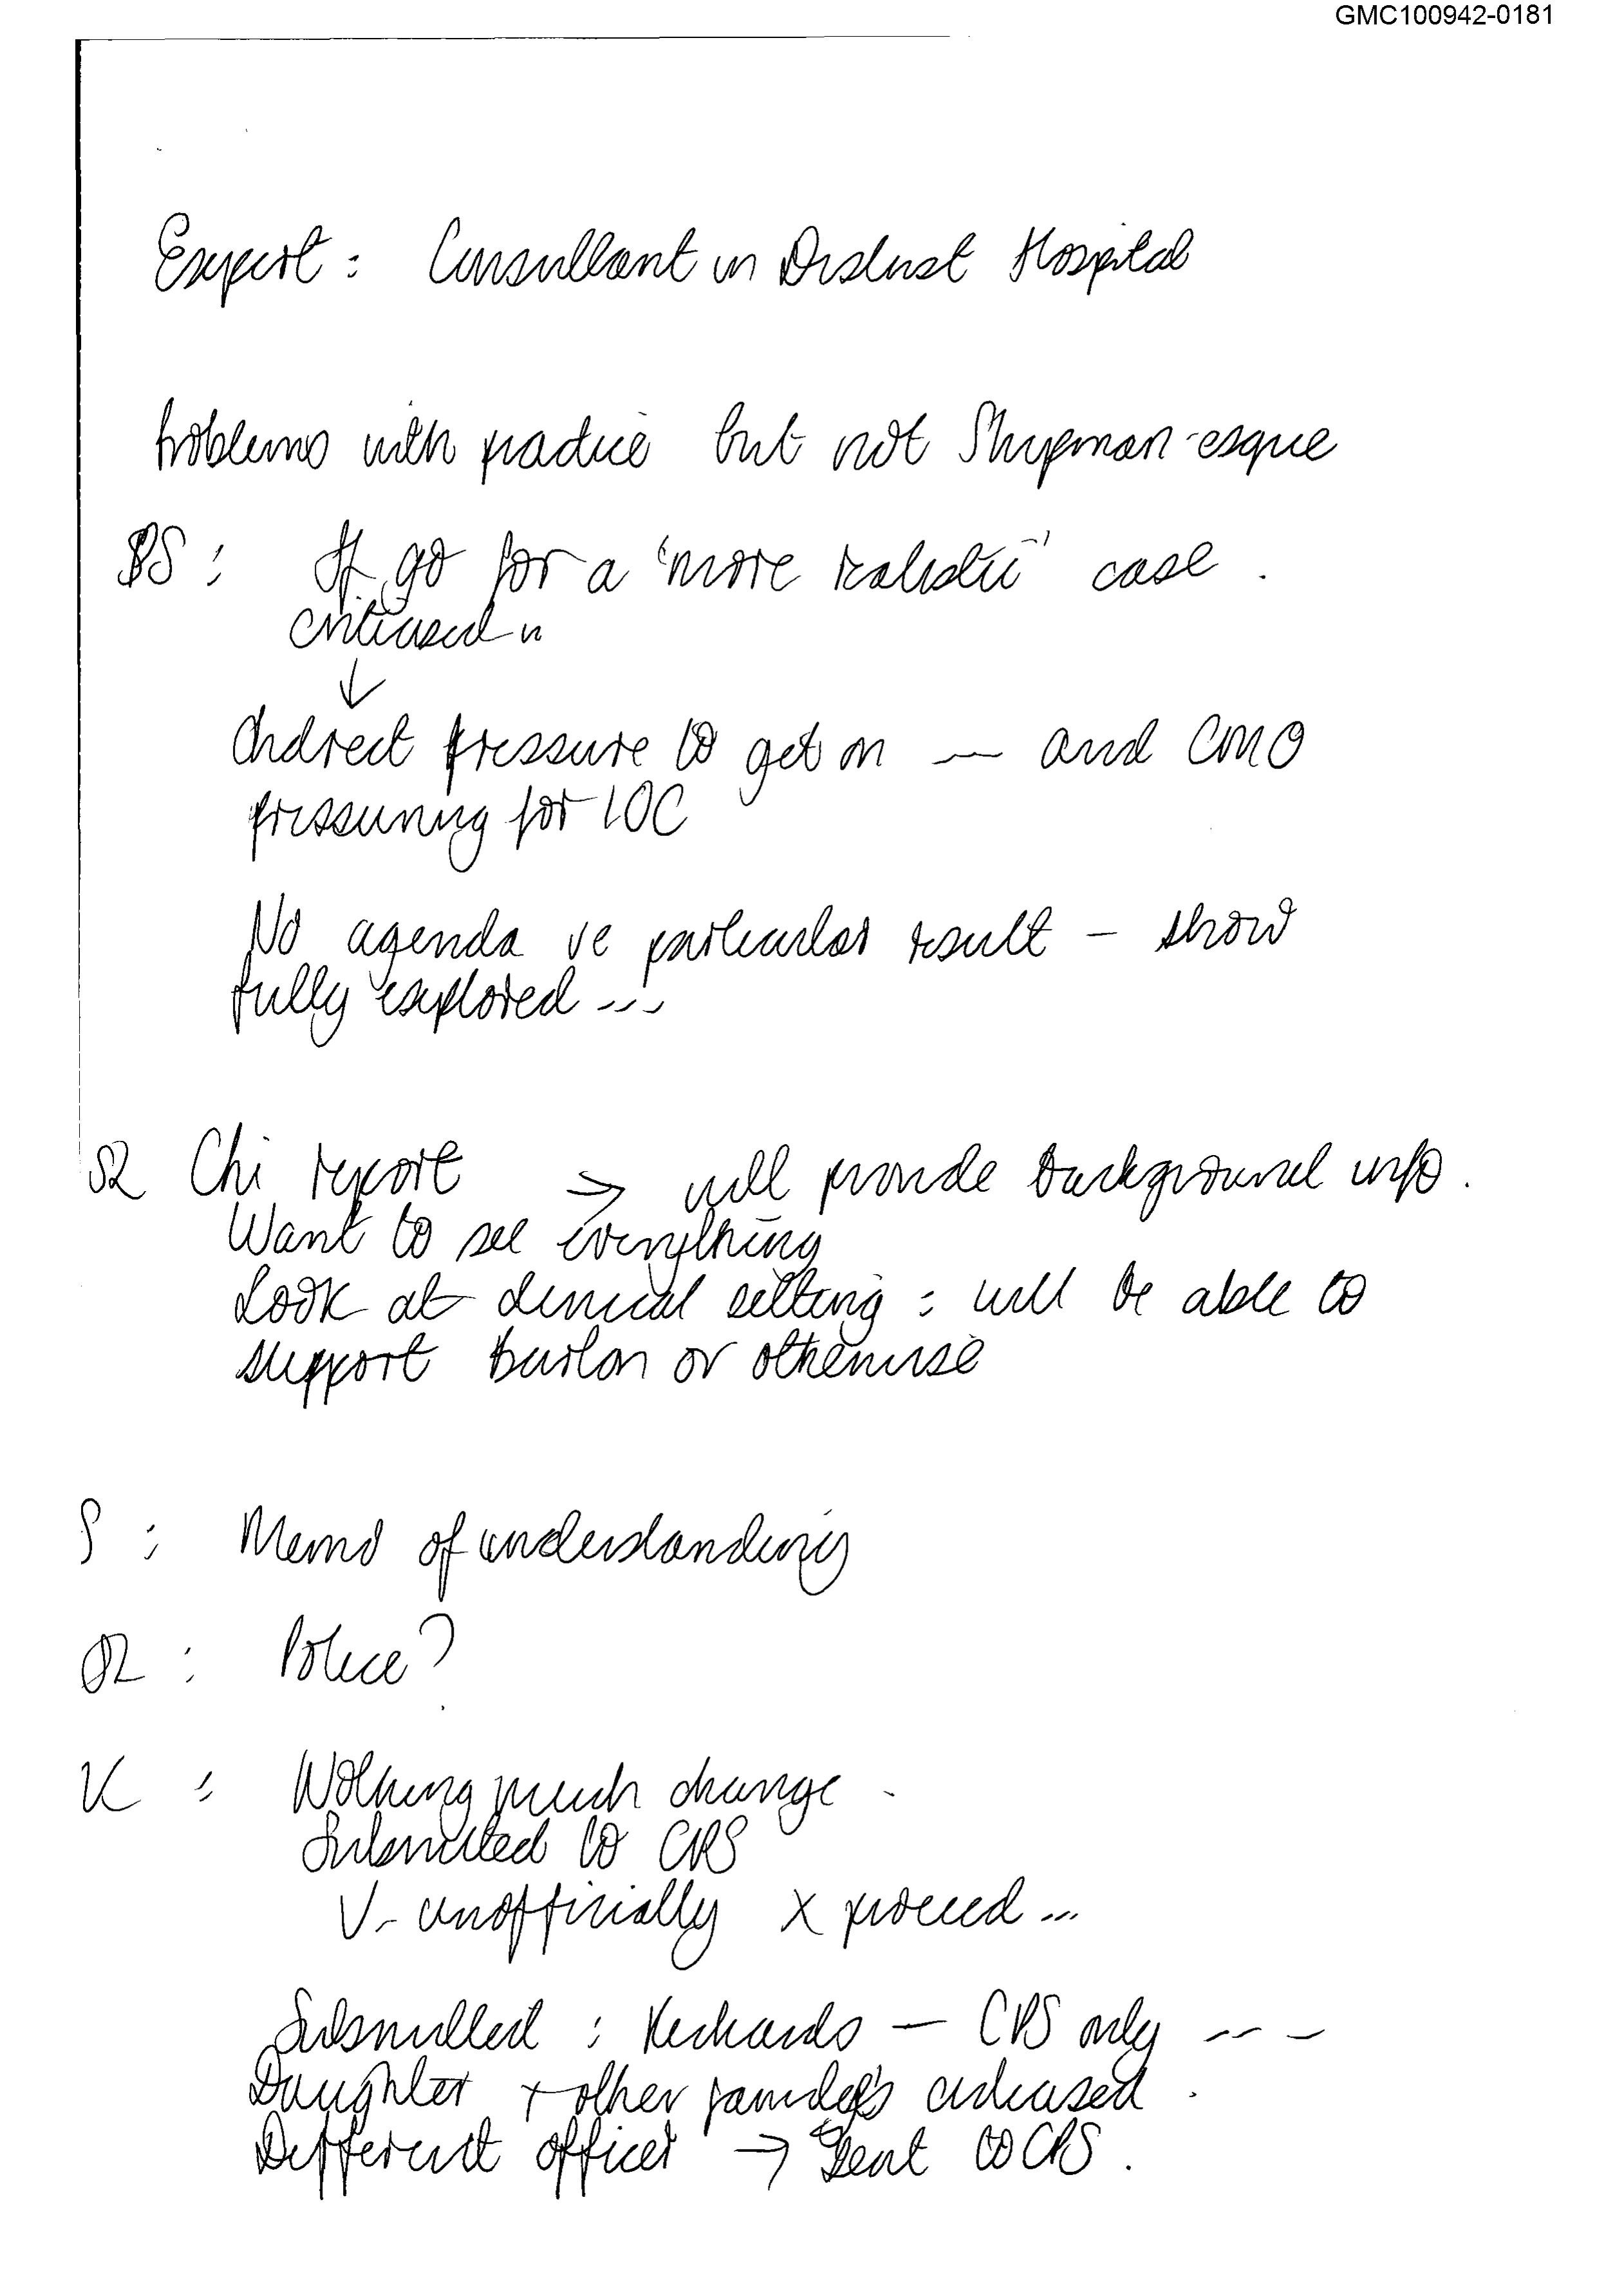 GMC100942-0181
Expert : Consultant in District Hospital
Problems with practice but not Shipman-esque
BS : If go for a 'more realistic' case .
criticised
↓
Indirect pressure to get on — and CMO
pressuring for IOC
No agenda re particular result - show
fully explored ---
Chi report → will provide background info .
Want to see everything
Look at clinical setting : will be able to
support Barton or otherwise
S : Memo of understanding
: Police?
K : Nothing much change
Submitted to CPS
V. unofficially X proceed ...
Submitted : Richards — CPS only ---
Daughter + other families criticised .
Different officer → Sent to CPS .